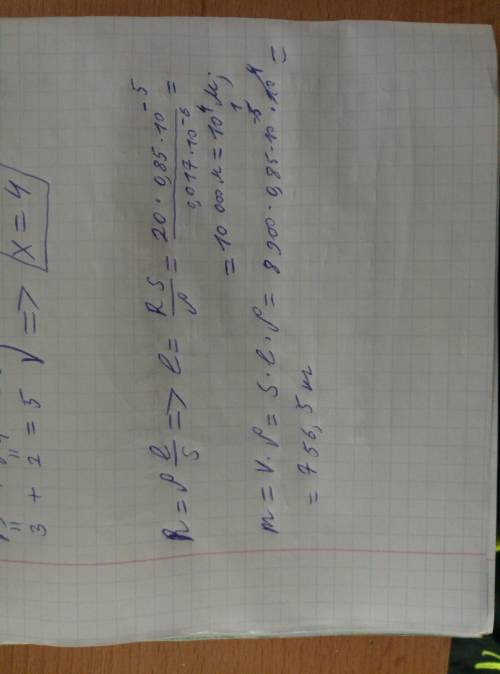 3 + 2 = 5 √ => x = 4
R = ρ l/S => l = RS/ρ = 20 · 0,85 · 10⁻⁵ / 0,017 · 10⁻⁶ =
= 10 000 м = 10⁴ м;
m = V · ρ = S · l · ρ = 8 900 · 0,85 · 10⁻⁵ · 10⁴ =
= 756,5 m